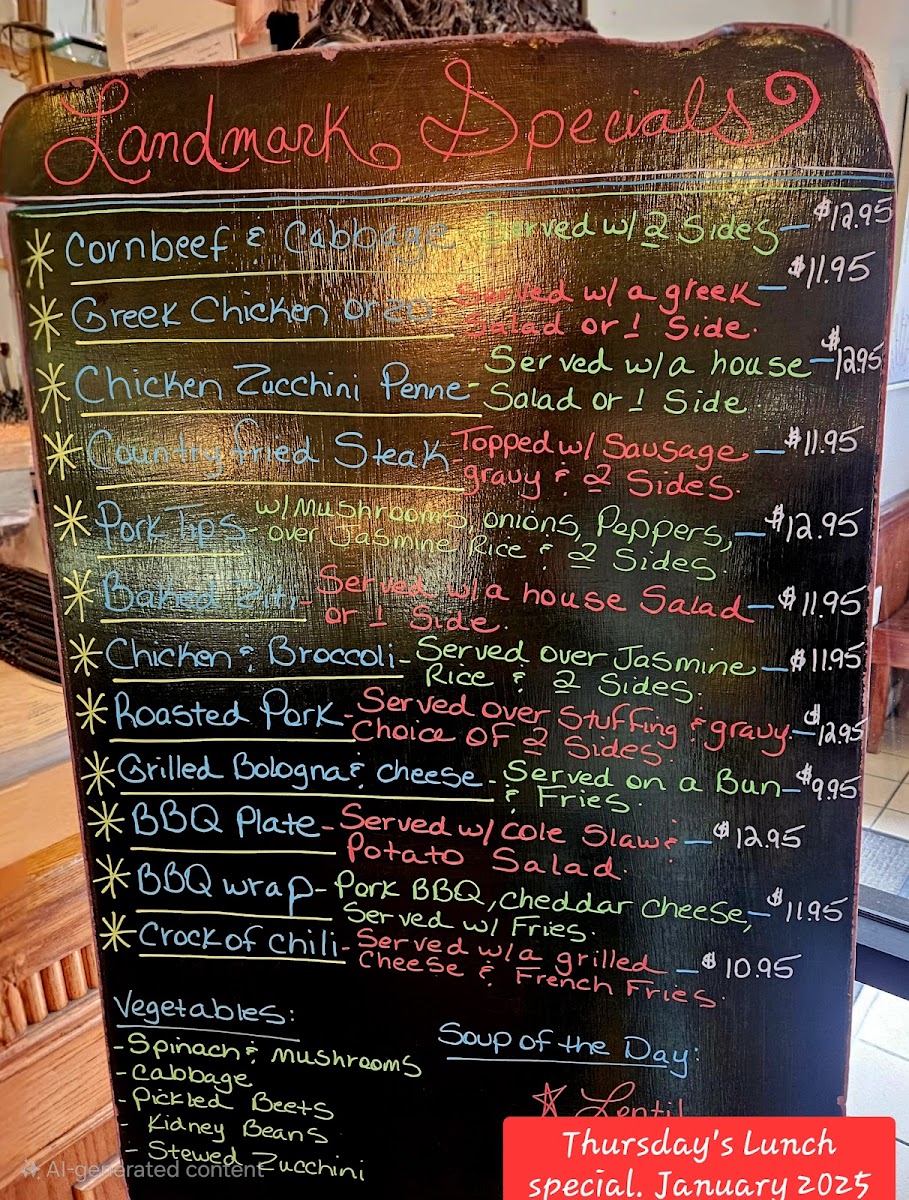 Landmark Specials
* Cornbeef & Cabbage Served w/ 2 Sides - $12.95
* Greek Chicken orzo - Served w/ a greek - $11.95
Salad or 1 Side.
* Chicken Zucchini Penne - Served w/a house - $12.95
Salad or 1 Side.
* Country fried Steak - Topped w/ Sausage - $11.95
gravy & 2 Sides.
* Pork Tips - w/Mushrooms, onions, Peppers, - $12.95
over Jasmine Rice & 2 Sides.
* Baked Ziti - Served w/a house Salad - $11.95
or 1 Side.
* Chicken & Broccoli - Served over Jasmine - $11.95
Rice & 2 Sides.
* Roasted Pork - Served over Stuffing & gravy - $12.95
Choice of 2 Sides.
* Grilled Bologna & cheese - Served on a Bun - $9.95
& Fries.
* BBQ Plate - Served w/ cole Slaw & - $12.95
Potato Salad.
* BBQ wrap - Pork BBQ, cheddar cheese, - $11.95
Served w/ Fries.
* Crock of chili - Served w/a grilled - $10.95
Cheese & French Fries.
Vegetables:
- Spinach & mushrooms
- Cabbage
- Pickled Beets
- Kidney Beans
- Stewed Zucchini
Soup of the Day:
☆ Lentil
AI-generated content
Thursday's Lunch
special. January 2025